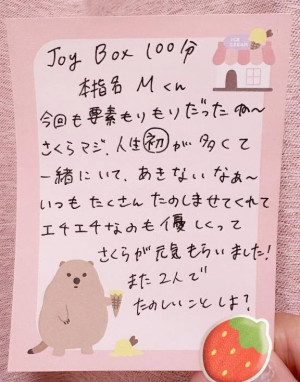 Joy Box 100分
本指名 Mくん
今回も要素もりもりだったね〜
さくらマジ、人生初が多くて
一緒にいて、あきないなぁ〜
いつもたくさんたのしませてくれて
エチエチなのも優しくって
さくらが元気もらいました!
また2人で
たのしいことしよ?